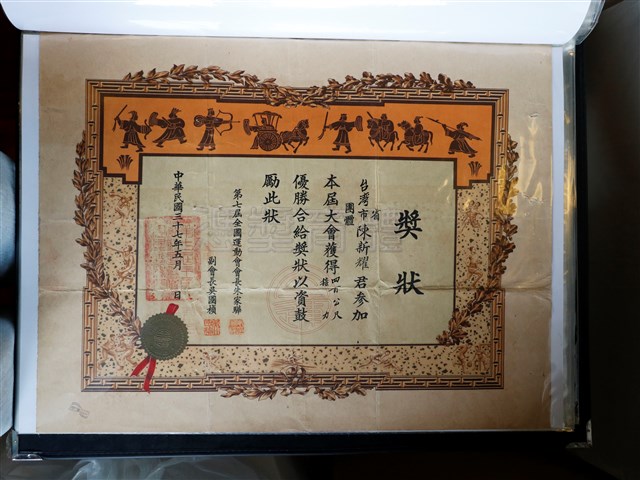 獎狀
台湾省市團體陳新耀君參加
本屆大會獲得四百公尺接力
優勝合給獎狀以資鼓
勵此狀
第七屆全國運動會會長朱家驊
副會長吳國楨
中華民國三十七年五月 日